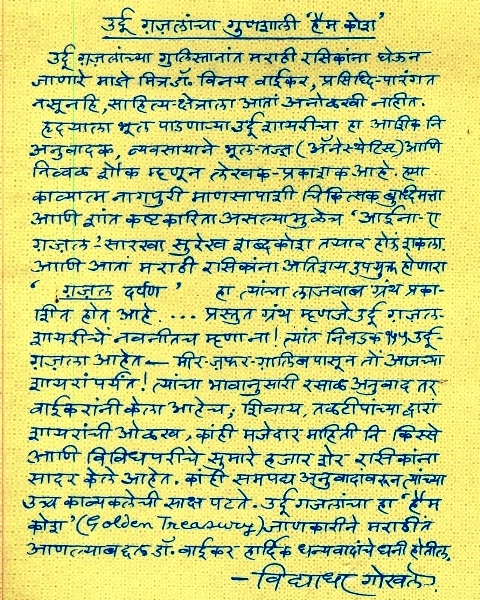 उर्दू ग़ज़लांचा गुणशाली 'हैम कोश'
उर्दू ग़ज़लांच्या गुलिस्तानांत मराठी रसिकांना घेऊन
जाणारे माझे मित्र डॉ. विनय वाईकर, प्रसिध्दि-पारंगत
नसूनहि, साहित्य-क्षेत्राला आतां अनोळखी नाहीत.
हृदयाला भूल पाडणाऱ्या उर्दू शायरीचा हा आशिक नि
अनुवादक, व्यवसायाने भूल-तज्ज्ञ (ॲनेस्थेटिस्ट) आणि
निव्वळ शौक म्हणून लेखक-प्रकाशक आहे. ह्या
काव्यात्म नागपुरी माणसापाशी चिकित्सक बुध्दिमत्ता
आणि शांत कष्टकारिता असल्यामुळेच 'आईना-ए
ग़ज़ल' सारखा सुरेख शब्दकोश तयार होऊं शकला.
आणि आतां मराठी रसिकांना अतिशय उपयुक्त होणारा
' ग़ज़ल दर्पण ' हा त्यांचा लाजवाब ग्रंथ प्रका-
शित होत आहे. ... प्रस्तुत ग्रंथ म्हणजे उर्दू ग़ज़ल-
शायरीचें नवनीतच म्हणाना! त्यांत निवडक ५५५ उर्दू-
ग़ज़ला आहेत — मीर-ज़फ़र-ग़ालिबपासून तों आजच्या
शायरांपर्यंत! त्यांचा भावानुसारी रसाळ अनुवाद तर
वाईकरांनी केला आहेच; शिवाय, तळटीपांच्या द्वारां
शायरांची ओळख, कांही मजेदार माहिती नि किस्से
आणि विविधपरीचे सुमारे हजार शेर रसिकांना
सादर केले आहेत. कांही समपद्य अनुवादावरून त्यांच्या
उच्च काव्यकलेची साक्ष पटते. उर्दू गजलांचा हा 'हैम
कोश' (Golden Treasury) जाणकारीने मराठीत
आणल्याबद्दल डॉ. वाईकर हार्दिक धन्यवादांचे धनी होतील.
— विद्याधर गोखले.